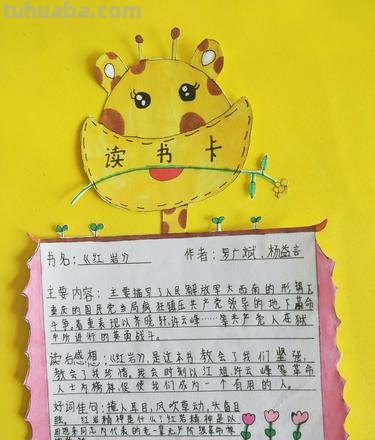 tuhuaba.com
读书卡
书名：《红岩》 作者：罗广斌、杨益言
主要内容：主要描写了人民解放军大西南的形势下
重庆的国民党当局疯狂镇压共产党领导的地下革命
斗争。着重表现以齐晓轩,许云峰……等共产党人在狱
中所进行的英勇战斗。
读后感想：《红岩》,是这本书教会了我们坚强,
教会了我珍惜。我会时刻以江姐,许云峰等革命
人士为榜样,促使我们成为一个有用的人。
好词佳句：掩人耳目,风吹草动,
红岩精神是什么?红岩精神是以
周恩来同志为代表的老一辈无产阶级革命家